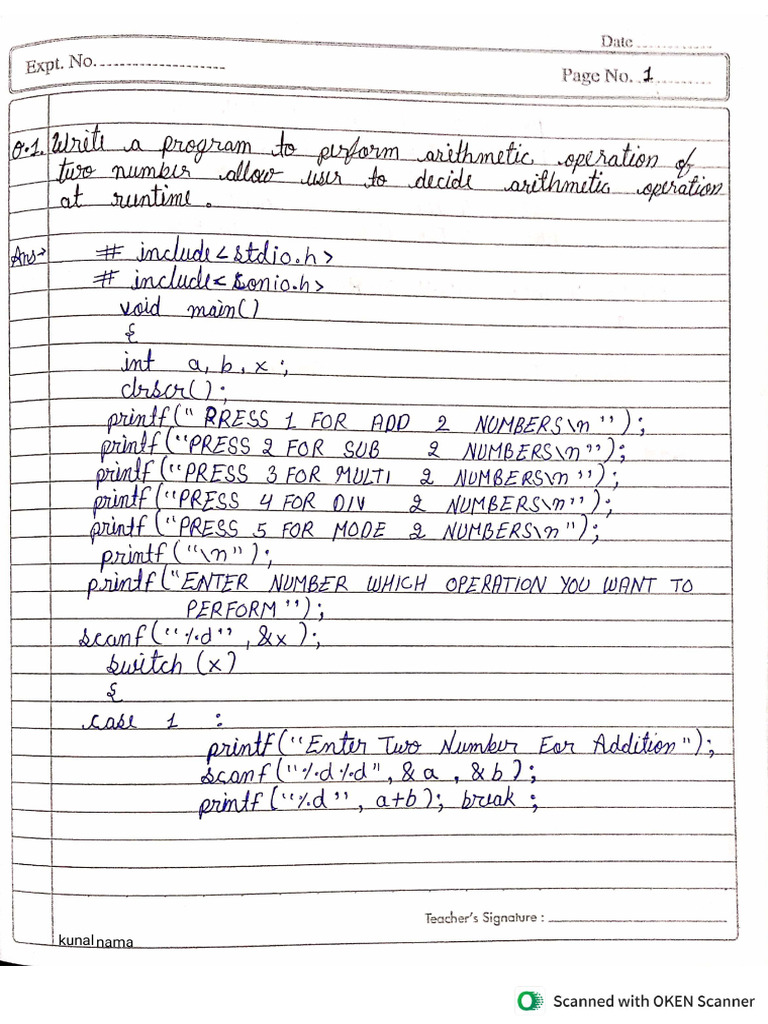 Date ............
Expt. No. ....................
Page No. 1 ............
Q.1. Write a program to perform arithmetic operation of
two number allow user to decide arithmetic operation
at runtime.
Ans→ # include<stdio.h>
# include<conio.h>
void main()
{
int a, b, x ;
clrscr();
printf("PRESS 1 FOR ADD 2 NUMBERS\n");
printf("PRESS 2 FOR SUB 2 NUMBERS\n");
printf("PRESS 3 FOR MULTI 2 NUMBERS\n");
printf("PRESS 4 FOR DIV 2 NUMBERS\n");
printf("PRESS 5 FOR MODE 2 NUMBERS\n");
printf("\n");
printf("ENTER NUMBER WHICH OPERATION YOU WANT TO
PERFORM");
scanf("%d", &x);
switch (x)
{
case 1 :
printf("Enter Two Number For Addition");
scanf("%d%d", &a , &b);
printf("%d", a+b); break ;
Teacher's Signature : ____________
kunal nama
Scanned with OKEN Scanner